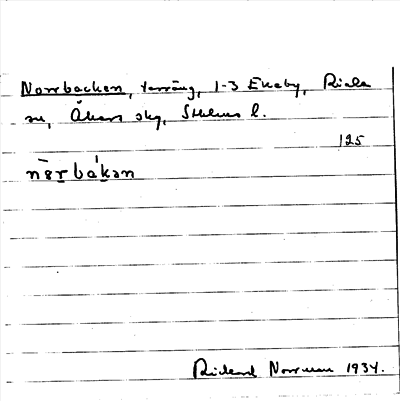 Norrbacken, terräng, 1-3 Ekeby, Riala
sn, Åkers skg, Sthlms l.
125
nǝr̲bákan
Rickard Norrman 1934.